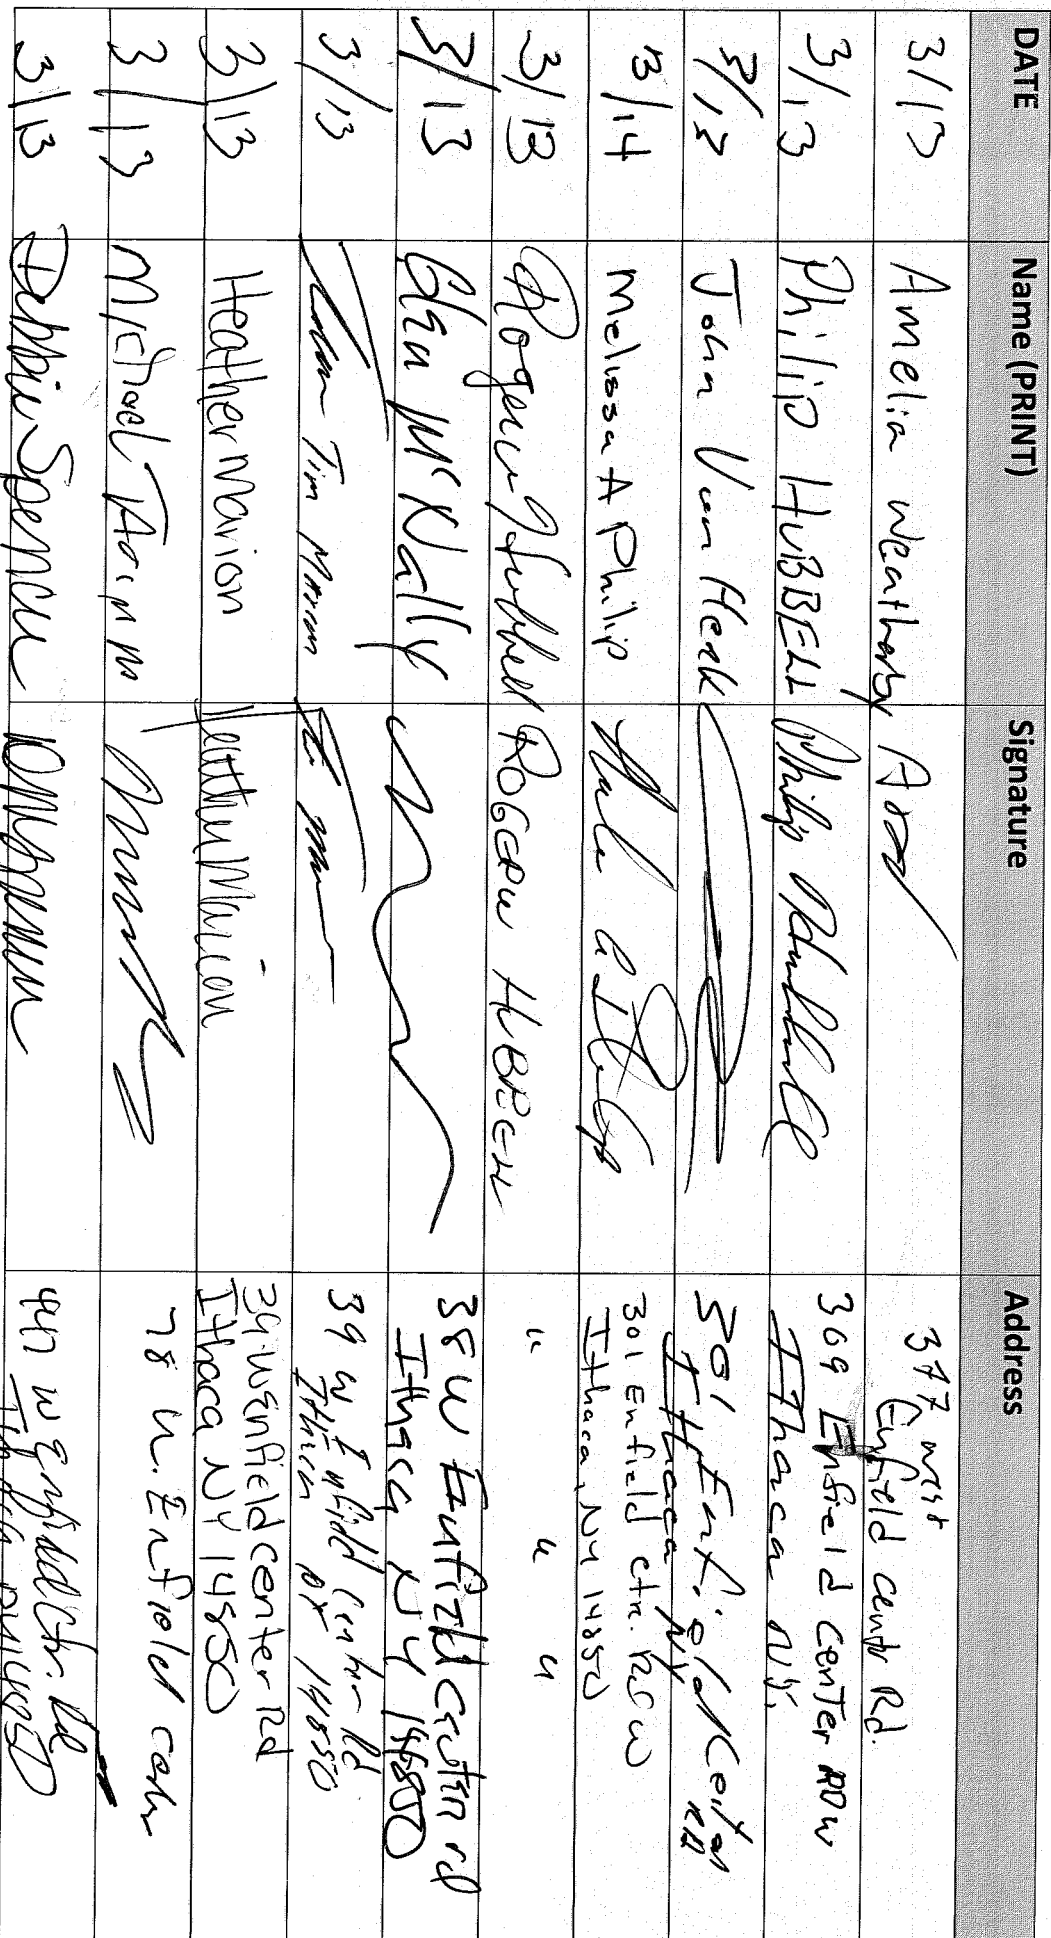 DATE Name (PRINT) Signature Address
3/13 Amelia Weatherby 377 west
Enfield Center Rd.
3/13 Philip HUBBELL Philip Hubbell 369 Enfield Center RD W
Ithaca NY.
3/13 John Van 301 Enfield Center
Rd
Ithaca NY
3/14 Melissa A Philip 301 Enfield ctr. Rd W
Ithaca, NY 14850
3/13 Roger Hubbell ROGER " " "
3/13 Glen McNally 38 W Enfield Center rd
Ithaca NY 14850
3/13 Tim Marion 39 W Enfield Center Rd
Ithaca NY 14850
3/13 Heather Marion Heather Marion 39 W Enfield Center Rd
Ithaca NY 14850
3/13 Michael 78 W. Enfield
3/13 Debbie Spencer 447 W Enfield Ctr. Rd
Ithaca NY 14850